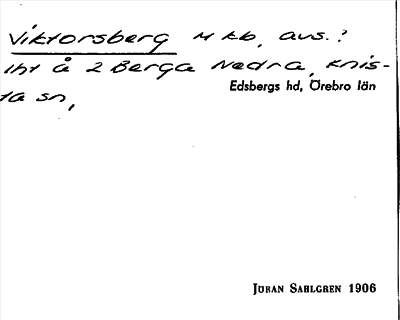 Viktorsberg M kb, avs.?
lht å 2 Berga Nedra, Knis-
ta sn,
Edsbergs hd, Örebro län
JÖRAN SAHLGREN 1906